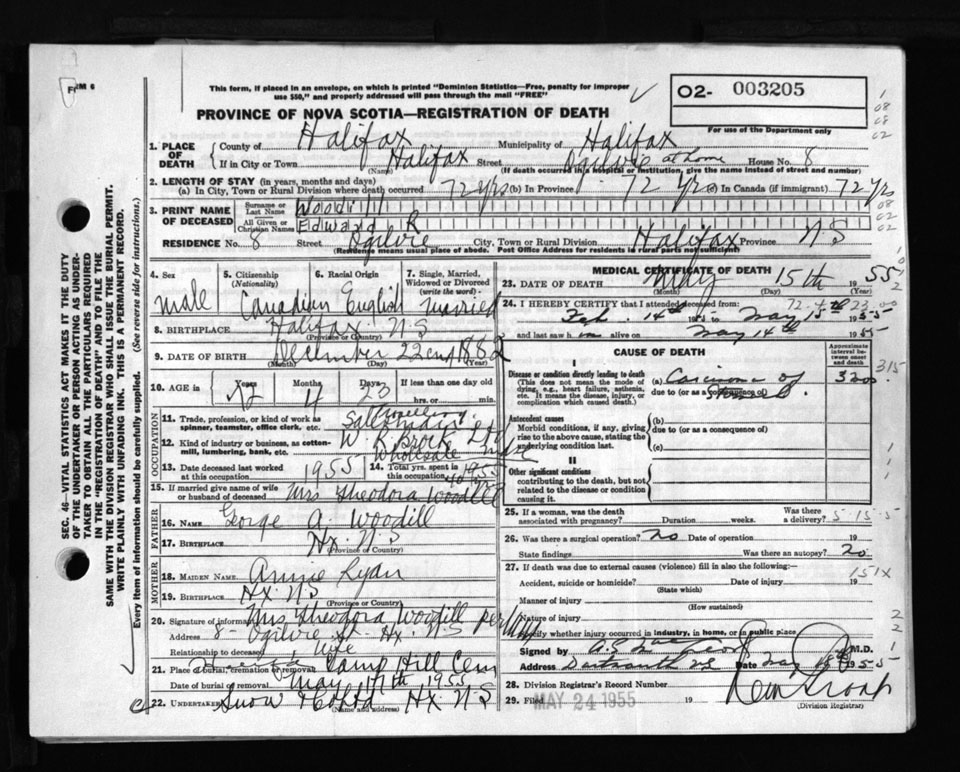 FORM 6
This form, if placed in an envelope, on which is printed "Dominion Statistics—Free, penalty for improper
use $50," and properly addressed will pass through the mail "FREE"
PROVINCE OF NOVA SCOTIA—REGISTRATION OF DEATH
O2- 003205
For use of the Department only
1. PLACE OF DEATH
County of Halifax Municipality of Halifax
If in City or Town Halifax Street Ogilvie at home House No. 8
(Name) (If death occurred in a hospital or institution, give the name instead of street and number)
2. LENGTH OF STAY (in years, months and days)
(a) In City, Town or Rural Division where death occurred 72 yrs (b) In Province 72 yrs (c) In Canada (if immigrant) 72 yrs
3. PRINT NAME OF DECEASED
Surname or Last Name Woodill
All Given or Christian Names Edward R
RESIDENCE No. 8 Street Ogilvie City, Town or Rural Division Halifax Province N S
(Residence means usual place of abode. Post Office Address for residents in rural parts not sufficient)
4. Sex
male
5. Citizenship
(Nationality)
Canadian
6. Racial Origin
English
7. Single, Married, Widowed or Divorced
(write the word)
married
8. BIRTHPLACE Halifax N S
(Province or Country)
9. DATE OF BIRTH December 22 1882
(Month) (Day) (Year)
10. AGE in Years Months Days If less than one day old
72 4 23 hrs. or min.
OCCUPATION
11. Trade, profession or kind of work as
spinner, teamster, office clerk, etc. Travelling Salesman
12. Kind of industry or business, as cotton-
mill, lumbering, bank, etc. W. R. Brock Ltd Wholesale
13. Date deceased last worked
at this occupation 1955
14. Total yrs. spent in
this occupation 40
15. If married give name of wife
or husband of deceased Mrs Theodora Woodill
FATHER
16. NAME George A. Woodill
17. BIRTHPLACE Hx. N S
(Province or Country)
MOTHER
18. MAIDEN NAME Annie Ryan
19. BIRTHPLACE Hx N S
(Province or Country)
20. Signature of informant Mrs Theodora Woodill per
Address 8 - Ogilvie St - Hx. N S
Relationship to deceased Wife
21. Place of burial, cremation or removal Camp Hill Cem
Date of burial or removal May 17th 1955
22. UNDERTAKER Snow & Co Ltd Hx. N S
(Name and address)
MEDICAL CERTIFICATE OF DEATH
23. DATE OF DEATH May 15th 1955
(Month) (Day)
24. I HEREBY CERTIFY that I attended deceased from:
Feb. 14th to May 15th 1955
and last saw h im alive on May 14th 1955
CAUSE OF DEATH
Approximate interval between onset and death
I
Disease or condition directly leading to death
(This does not mean the mode of dying, e.g., heart failure, asthenia, etc. It means the disease, injury, or complication which caused death.)
(a) Carcinoma of
due to (or as a consequence of)
Antecedent causes
Morbid conditions, if any, giving rise to the above cause, stating the underlying condition last.
(b)
due to (or as a consequence of)
(c)
II
Other significant conditions
contributing to the death, but not related to the disease or condition causing it.
25. If a woman, was the death
associated with pregnancy? Duration weeks. Was there a delivery?
26. Was there a surgical operation? no Date of operation 19
State findings Was there an autopsy? no
27. If death was due to external causes (violence) fill in also the following:
Accident, suicide or homicide? Date of injury 19
(State which)
Manner of injury
(How sustained)
Specify whether injury occurred in industry, in home, or in public place
Signed by M.D.
Address Dartmouth NS Date May 1955
28. Division Registrar's Record Number
29. Filed MAY 24 1955 19
(Division Registrar)
SEC. 46—VITAL STATISTICS ACT MAKES IT THE DUTY
OF THE UNDERTAKER OR PERSON ACTING AS UNDER-
TAKER TO OBTAIN ALL THE PARTICULARS REQUIRED
IN THE "REGISTRATION OF DEATH" AND TO FILE THE
SAME WITH THE DIVISION REGISTRAR WHO SHALL ISSUE THE BURIAL PERMIT.
WRITE PLAINLY WITH UNFADING INK. THIS IS A PERMANENT RECORD.
Every item of information should be carefully supplied. (See reverse side for instructions.)